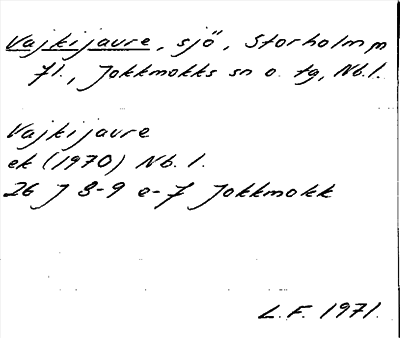 Vajkijaure, sjö, Storholmen
71., Jokkmokks sn o. tg, Nb.l.
Vajkijaure
ek (1970) Nb. l.
26 J 8-9 e-7 Jokkmokk
L.F. 1971.